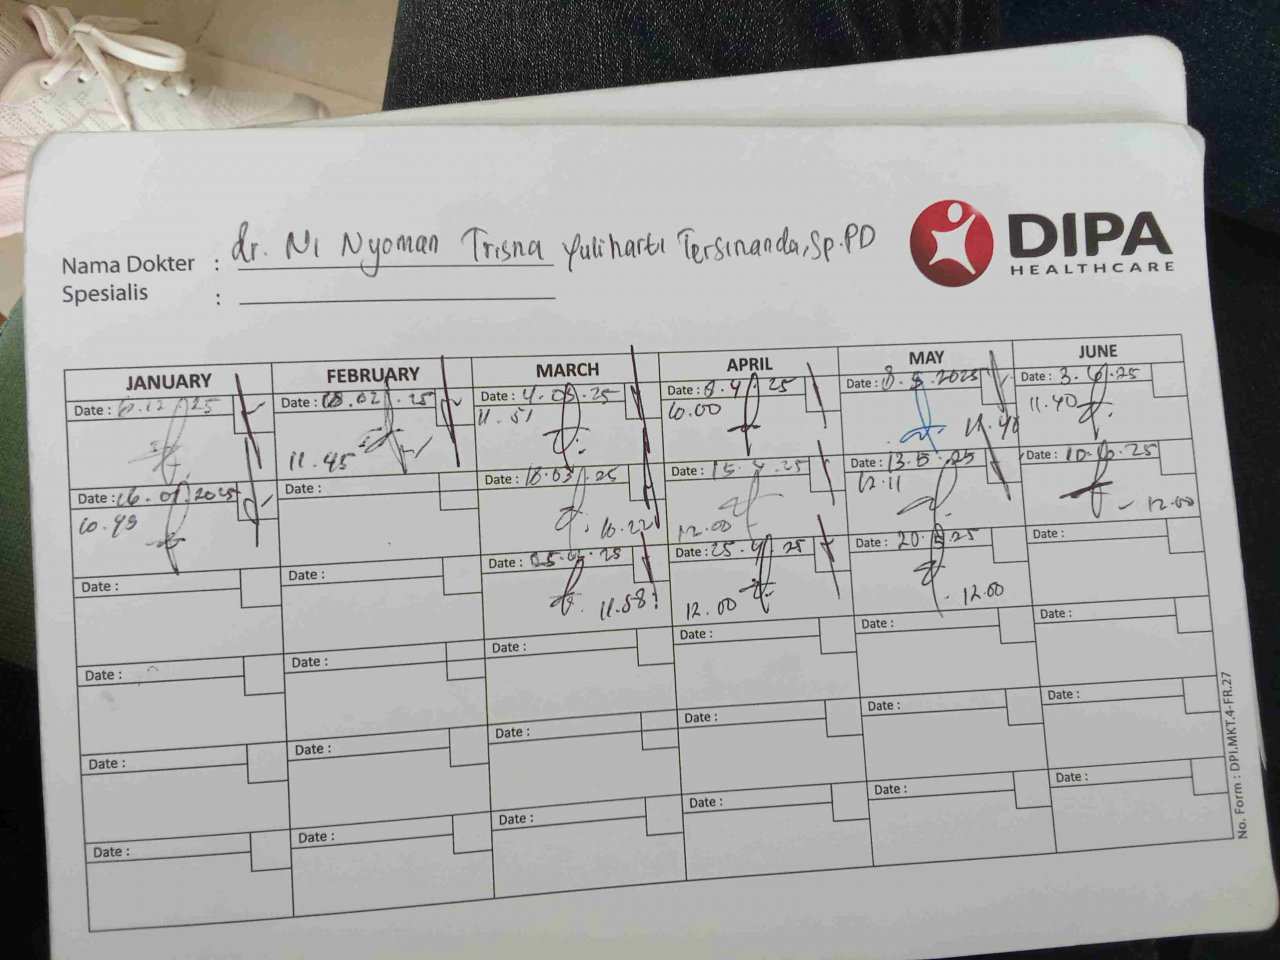 DIPA
HEALTHCARE
Nama Dokter : dr. Ni Nyoman Trisna Yuliharti Tersinanda, Sp.PD
Spesialis :
JANUARY FEBRUARY MARCH APRIL MAY JUNE
Date : 25 Date : 02.25 Date : 4.03.25 Date : 8.4.25 Date : 8.5.2025 Date : 3.6.25
11.45 11.51 10.00 11.40 11.40
Date : 16.01.2025 Date : Date : 18.03.25 Date : 15.4.25 Date : 13.5.25 Date : 10.6.25
10.22 12.00 12.11 12.00
Date : Date : Date : 25 Date : 25.4.25 Date : 20.5.25 Date :
11.58 12.00 12.00
Date : Date : Date : Date : Date : Date :
Date : Date : Date : Date : Date : Date :
Date : Date : Date : Date : Date : Date :
No. Form : DPI.MKT.4-FR.27